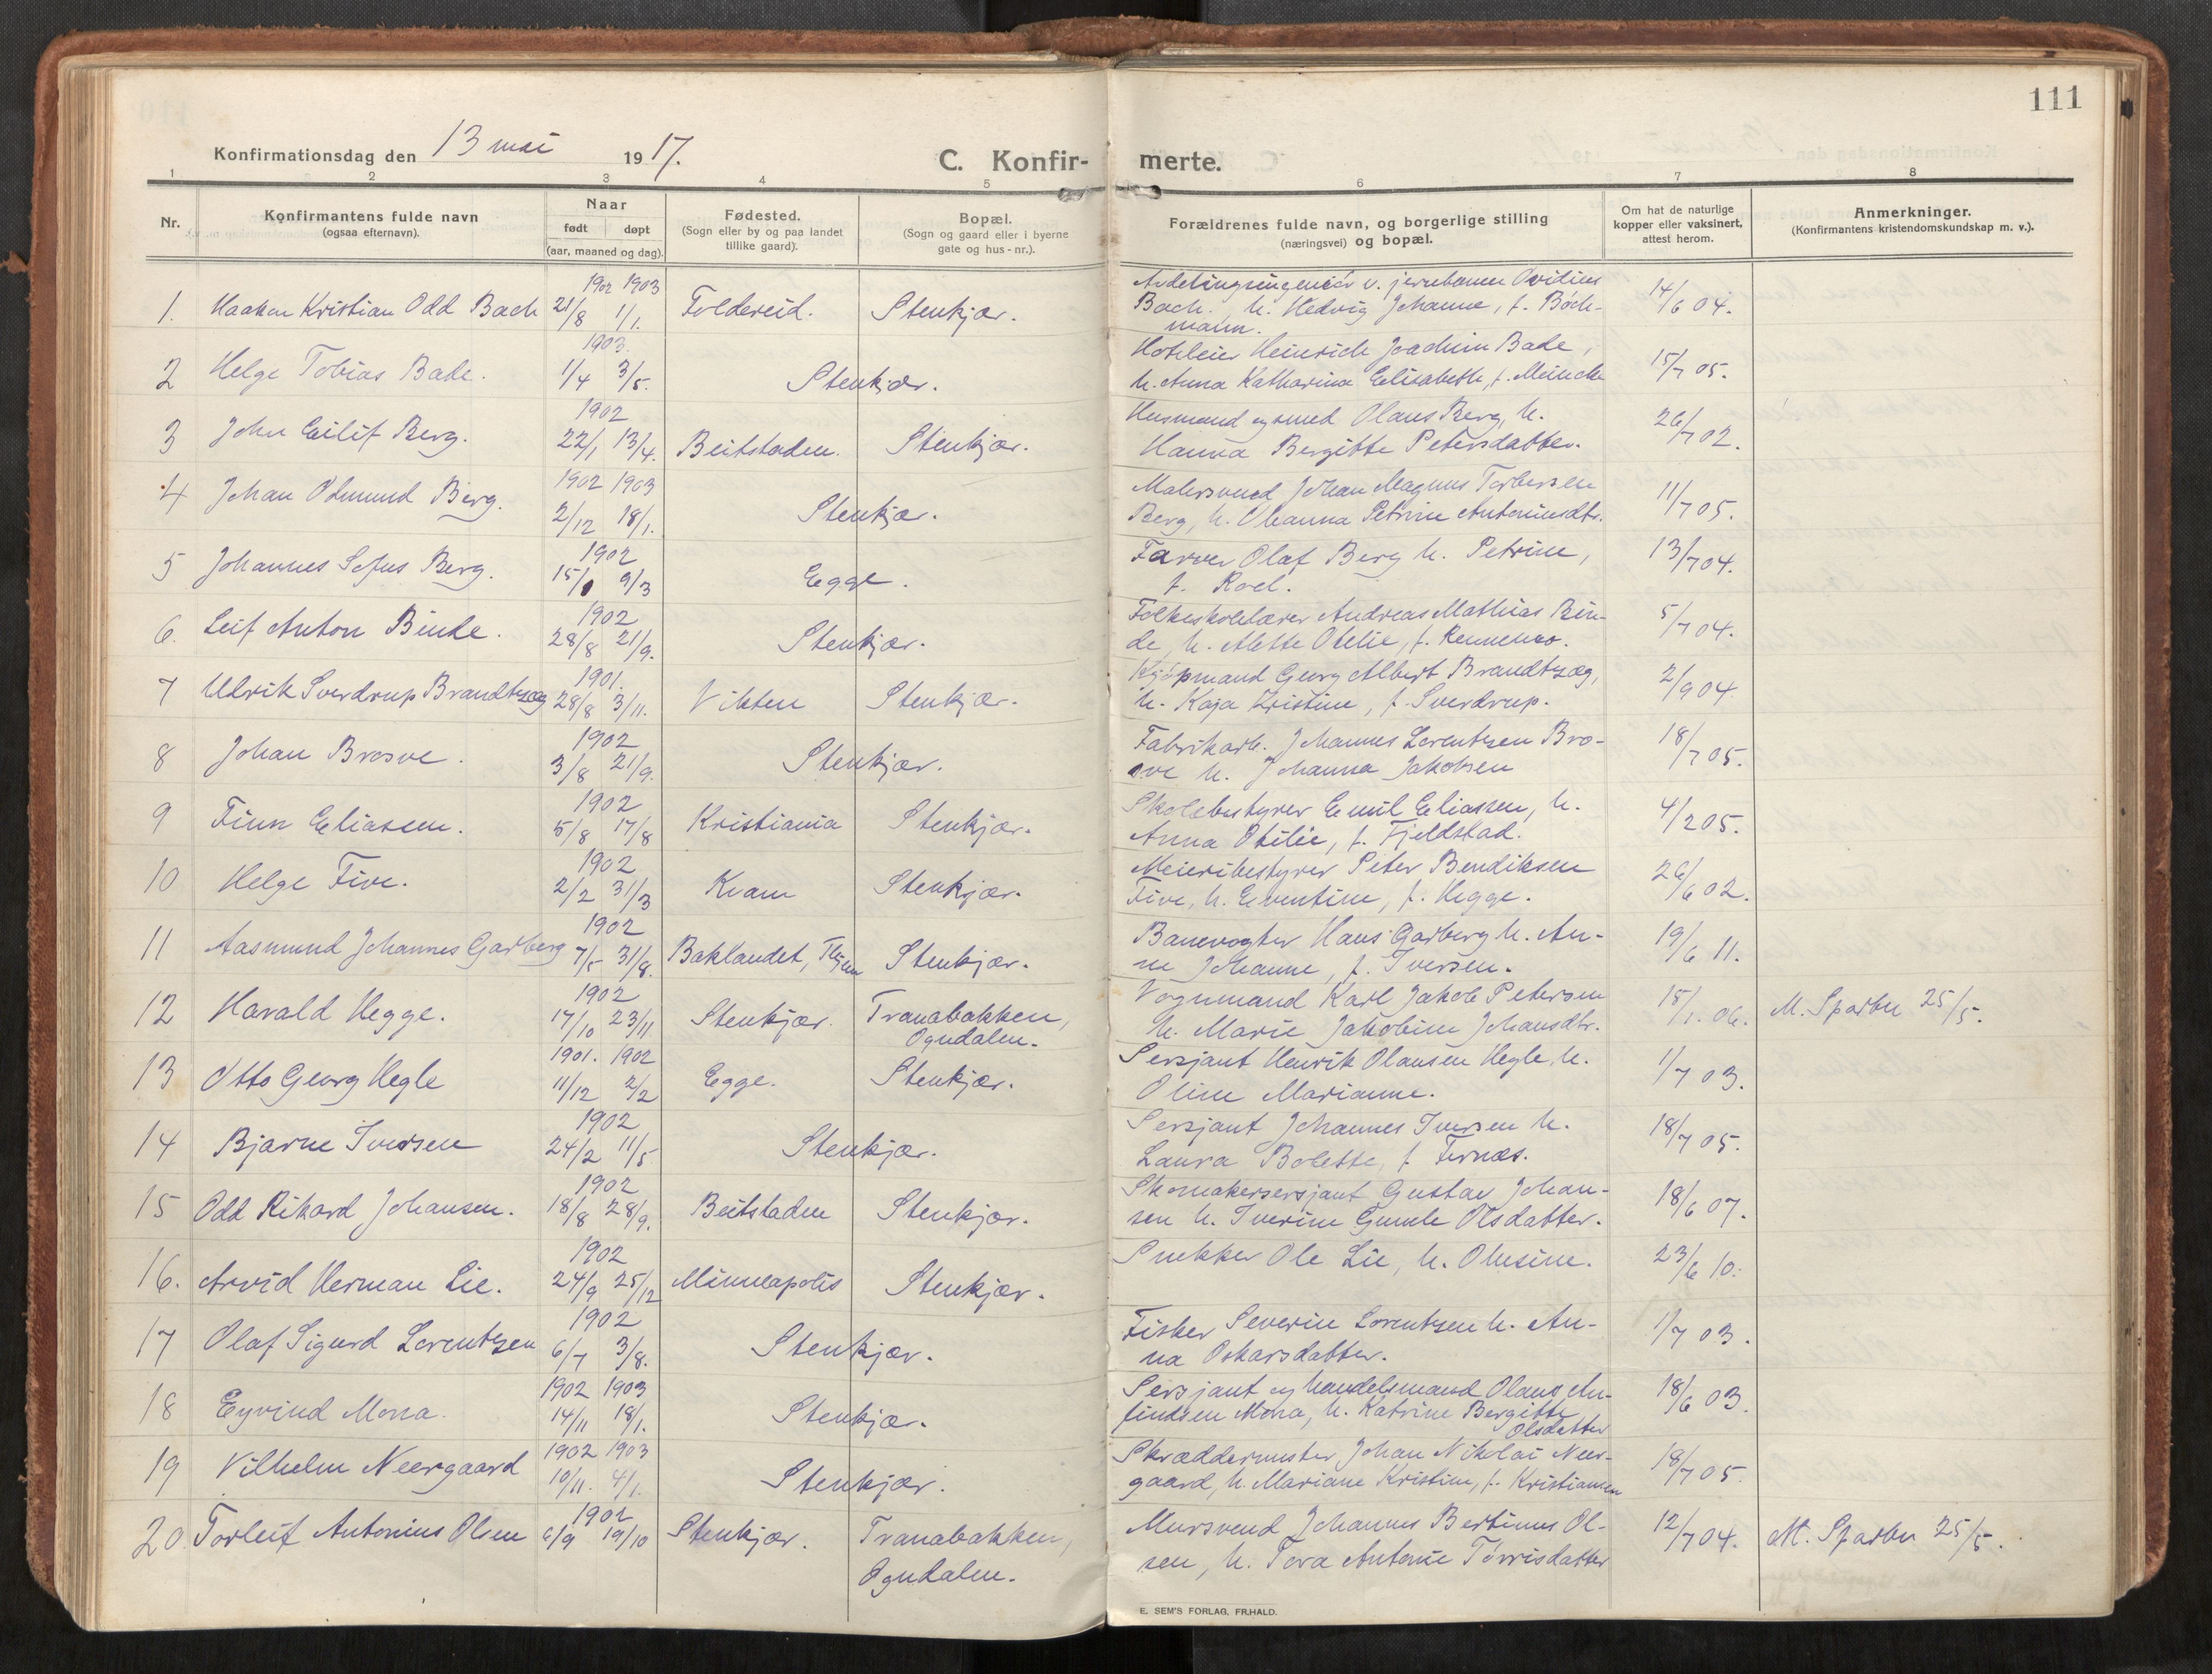 111
Konfirmationsdag den 13 mai 1917.
C. Konfir-
merte.
1 2 3 4 5 6 7 8
Nr.
Konfirmantens fulde navn
(ogsaa efternavn).
Naar
født døpt
(aar, maaned og dag).
Fødested.
(Sogn eller by og paa landet
tillike gaard).
Bopæl.
(Sogn og gaard eller i byerne
gate og hus-nr.).
Forældrenes fulde navn, og borgerlige stilling
(næringsvei) og bopæl.
Om hat de naturlige
kopper eller vaksinert,
attest herom.
Anmerkninger.
(Konfirmantens kristendomskundskap m. v.).
1902 1903
1. Haakon Kristian Odd Bach 21/8 1/1. Foldereid. Stenkjær.
Avdelingsingeniør v. jernbanen Ovidius
Bach. h. Hedvig Johanne, f. Böch-
mann.
14/6 04.
1903.
2 Helge Tobias Bade. 1/4 3/5. Stenkjær.
Hoteleier Heinrich Joachim Bade,
h. Anna Katharina Elisabeth, f. Meincke
15/7 05.
1902
3 John Eilif Berg. 22/1 13/4. Beitstaden. Stenkjær.
Husmand og smed Olaus Berg, h.
Hanna Bergitte Petersdatter.
26/7 02.
1902 1903
4 Johan Odmund Berg. 2/12 18/1. Stenkjær.
Malersvend Johan Magnus Torbersen
Berg, h. Oleanna Petrine Antoniusdtr.
11/7 05.
1902
5 Johannes Sofus Berg. 9/3 Egge.
Farver Olaf Berg h. Petrine,
f. Roel.
13/7 04.
1902
6. Leif Anton Binde. 28/8 21/9. Stenkjær.
Folkeskolelærer Andreas Mathias Bin-
de, h. Mette Otelie, f.
5/7 04.
1901.
7 Ulrik Sverdrup Brandtzæg 28/8 3/11. Vikten Stenkjær.
Kjøpmand Georg Albert Brandtzæg,
h. Kaja Kristine, f. Sverdrup.
2/9 04.
1902
8 Johan Brosve. 3/8 21/9. Stenkjær.
Fabrikarb. Johannes Lorentzen Bro-
sve h. Johanna Jakobsen
18/7 05.
1902
9 Finn Eliassen. 5/8 17/8 Kristiania Stenkjær.
Skolebestyrer Emil Eliassen, h.
Anna Otilie, f. Fjeldstad.
4/2 05.
1902
10 Helge Five. 2/2 31/3 Kvam Stenkjær.
Meieribestyrer Peter Bendiksen
Five, h. Eventine, f. Hegge.
26/6 02.
1902
11 Aasmund Johannes Garberg 7/5 31/8. Baklandet, Thjem Stenkjær.
Banevogter Hans Garberg h. An-
ne Johanne, f. Iversen.
19/6 11.
1902
12 Harald Hegge. 17/10 23/11 Stenkjær. Tranabakken,
Ogndalen.
Vognmand Karl Jakob Petersen
h. Marie Jakobine Johansdtr.
15/1. 06. M. Sparbu 25/5.
1901. 1902
13 Otto Georg Hegle 11/12 2/2 Egge. Stenkjær.
Sersjant Henrik Olausen Hegle, h.
Oline Marianne.
1/7 03.
1902
14 Bjarne Iversen 24/2 11/5 Stenkjær.
Sersjant Johannes Iversen h.
Laura Bolette, f. Fernæs.
18/7 05.
1902
15 Odd Rikard Johansen. 18/8 28/9. Beitstaden Stenkjær.
Skomakersersjant Gustav Johan-
sen h. Iverine Gunele Olsdatter.
18/6 07.
1902
16. Arvid Herman Lie. 24/9 25/12 Minneapolis Stenkjær.
Snekker Ole Lie, h. Olusine.
23/6 10.
1902
17 Olaf Sigurd Lorentzen 6/7 3/8. Stenkjær.
Fisker Severin Lorentzen h. An-
na Oskarsdatter.
1/7 03.
1902 1903
18 Eyvind Mona. 14/11 18/1. Stenkjær.
Sersjant og handelsmand Olaus An-
findsen Mona, h. Katrine Bergitte
Olsdatter
18/6 03.
1902 1903
19 Vilhelm Neergaard 10/11. 4/1. Stenkjær.
Skræddermester Johan Nikolai Neer-
gaard, h. Mariane Kristine, f. Kristiansen
18/7 05.
1902
20. Torleif Antonius Olsen 6/9 19/10 Stenkjær. Tranabakken,
Ogndalen.
Mursvend Johannes Bertinus Ol-
sen, h. Tora Antonie Tørrisdatter
12/7 04. M. Sparbu 25/5.
E. SEM'S FORLAG, FR.HALD.